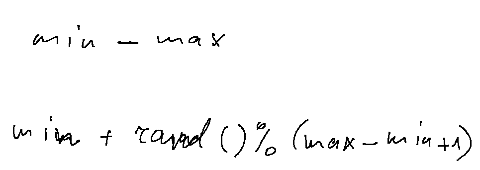 min - max
min + rand()% (max-min+1)